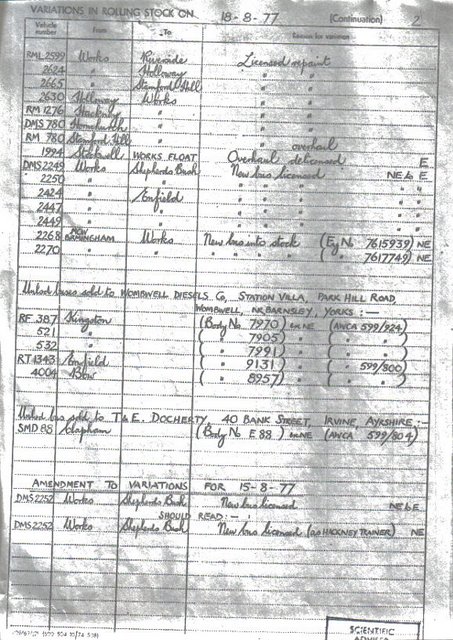 VARIATIONS IN ROLLING STOCK ON 18-8-77 (Continuation) 2
Vehicle number From To Reason for variation
RML 2599 Works Riverside Licensed repaint
2624 " Holloway " "
2665 " Stamford Hill " "
2630 Holloway Works " "
RM 1276 Hackney " " "
DMS 780 Hornchurch " " "
RM 780 Stamford Hill " " overhaul
1994 Stockwell WORKS FLOAT Overhaul delicensed E
DMS 2249 Works Shepherds Bush New bus licensed NE to E
2250 " " " " " "
2424 " Enfield " " " "
2447 " " " " " "
2449 " " " " " "
2268 MCW BIRMINGHAM Works New bus into stock (Eng No 7615939) NE
2270 " " " " " " ( " 7617749) NE
Unlicd buses sold to WOMBWELL DIESELS Co, STATION VILLA, PARK HILL ROAD,
WOMBWELL, NR. BARNSLEY, YORKS :—
RF 387 Kingston (Body No 7970) in NE (AWCA 599/924)
521 " ( " 7905) " ( " " )
532 " ( " 7991) " ( " " )
RT 4343 Enfield ( " 9131) " ( " 599/800)
4004 Bow ( " 8957) " ( " " )
Unlicd bus sold to T & E. DOCHERTY 40 BANK STREET, IRVINE, AYRSHIRE :—
SMD 88 Clapham (Body No E 88) in NE (AWCA 599/804)
AMENDMENT TO VARIATIONS FOR 15-8-77
DMS 2252 Works Shepherds Bush New bus licensed NE to E
SHOULD READ :—
DMS 2252 Works Shepherds Bush New bus licensed (as HICKNEY TRAINER) NE
SCIENTIFIC